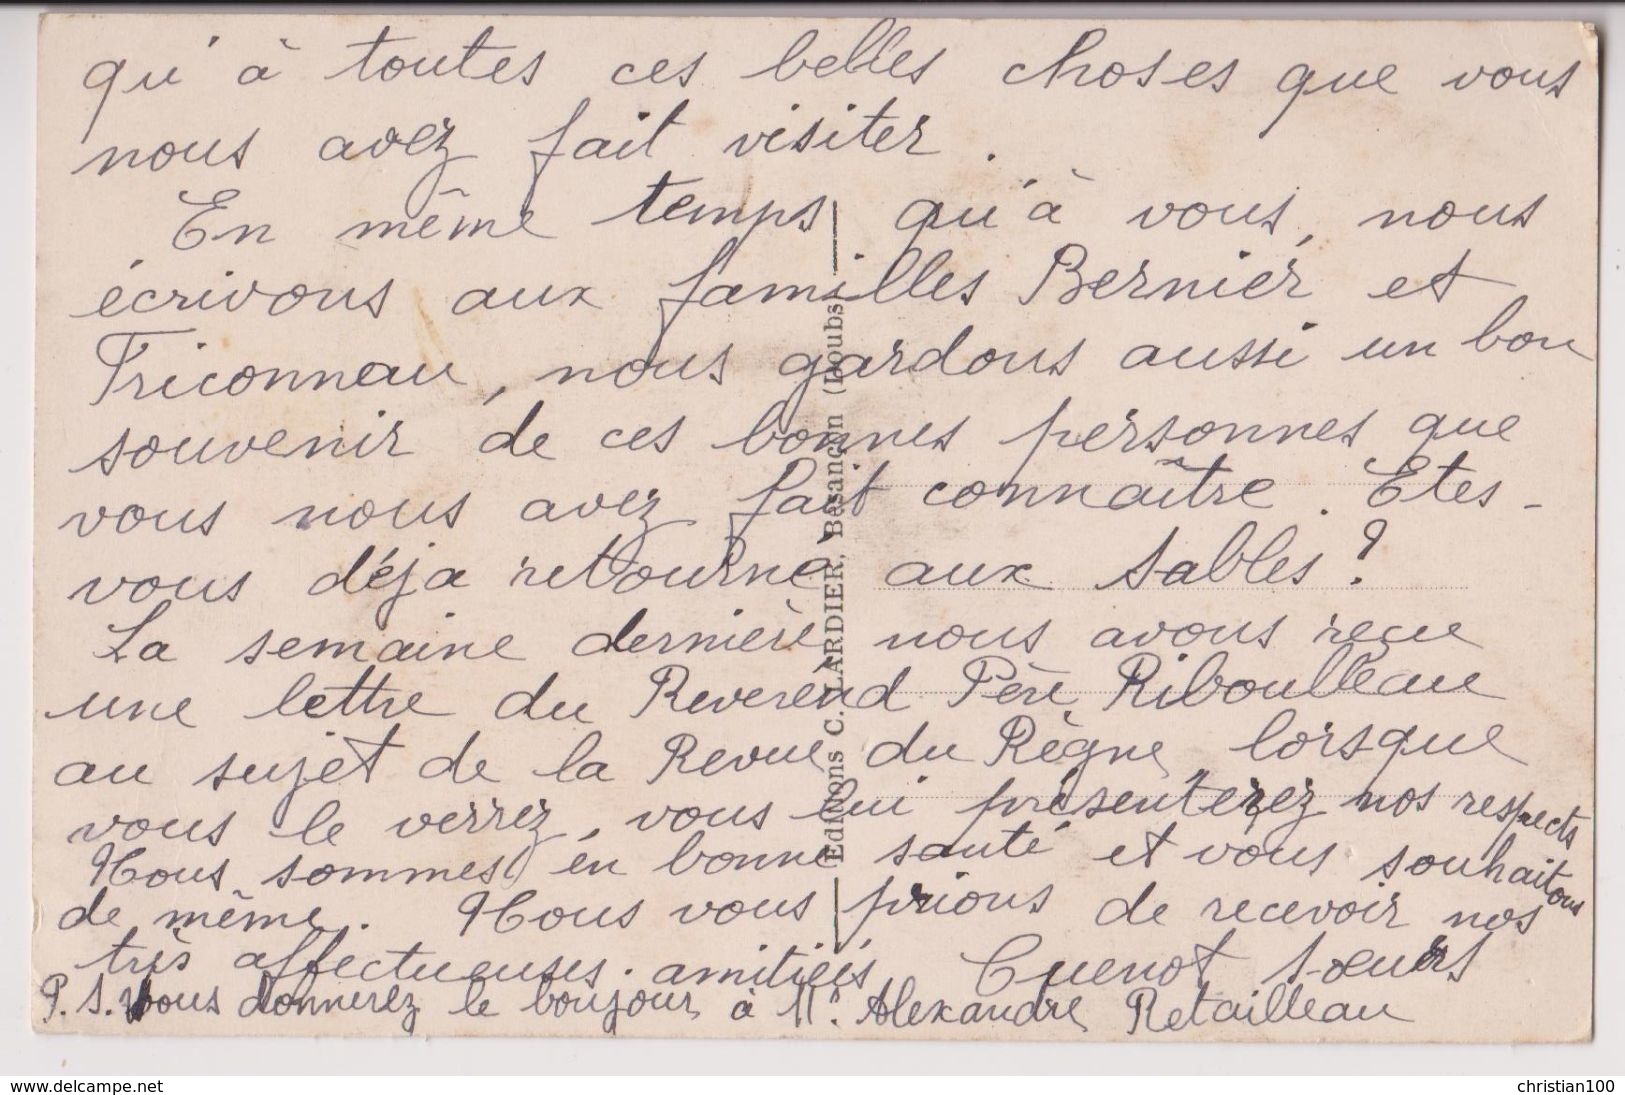 qu'à toutes ces belles choses que vous
nous avez fait visiter.
En même temps qu'à vous, nous
écrivons aux familles Bernier et
Triconneau, nous gardons aussi un bon
souvenir de ces bonnes personnes que
vous nous avez fait connaître. Etes-
vous déja retourné aux Sables?
La semaine dernière nous avons reçue
une lettre du Reverend Père Riboulleau
au sujet de la Revue du Règne, lorsque
vous le verrez, vous lui présenterez nos respects
Nous sommes en bonne santé et vous souhaitons
de même. Nous vous prions de recevoir nos
très affectueuses amitiés Cuenot sœurs
P.S. Vous donnerez le boujour à Mr. Alexandre Retailleau
Editions C. LARDIER, Besançon (Doubs)
www.delcampe.net
christian100